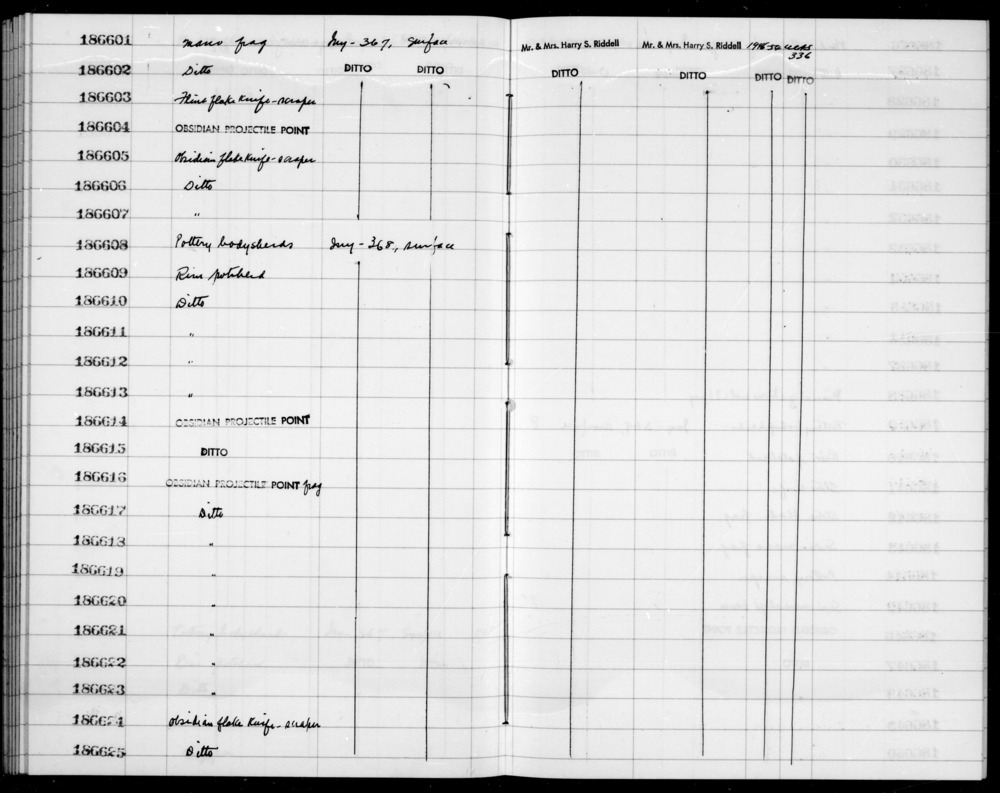 186601 mano frag Iny-367, surface Mr. & Mrs. Harry S. Riddell Mr. & Mrs. Harry S. Riddell 1948-50 UCAS
336
186602 Ditto DITTO DITTO DITTO DITTO DITTO DITTO
186603 Flint flake knife-scraper
186604 OBSIDIAN PROJECTILE POINT
186605 Obsidian flake knife-scraper
186606 Ditto
186607 "
186608 Pottery bodysherds Iny-368, surface
186609 Rim potsherd
186610 Ditto
186611 "
186612 "
186613 "
186614 OBSIDIAN PROJECTILE POINT
186615 DITTO
186616 OBSIDIAN PROJECTILE POINT frag
186617 Ditto
186618 "
186619 "
186620 "
186621 "
186622 "
186623 "
186624 Obsidian flake knife-scraper
186625 Ditto